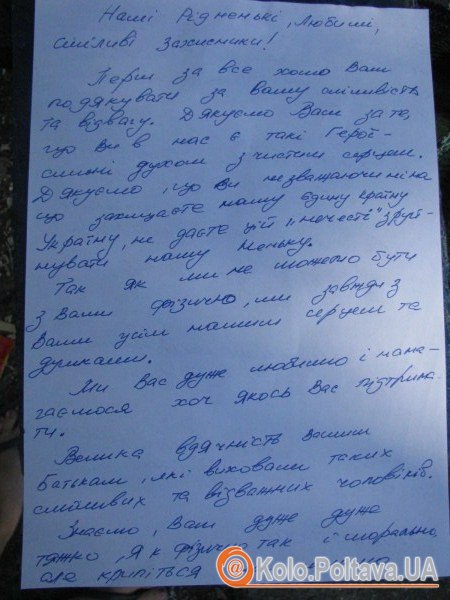 Намі Рідненькі, Любимі,
сміливі Захисники!
Перш за все хочю Вам
подякувати за вашу сміливість
та відвагу. Дякуємо Вам за те,
що Ви в нас є такі Герої-
сильні духом з чистим серцем.
Дякуємо, що Ви не зважаючи ні на
що захищаєте нашу єдину країну
Україну, не даєте цій „нечесті" зруй-
нувати нашу Неньку.
Так як ми не можемо бути
з Вами фізично, ми завжди з
Вами усім нашим серцем та
думками.
Ми Вас дуже любимо і нама-
гаємося хоч якось Вас підтрима-
ти.
Велика вдячність Вашим
Батькам, які виховали таких
сміливих та відважних чоловіків.
Знаємо, Вам дуже дуже
тяжко, як фізично так і морально
але кріпіться
@Kolo.Poltava.UA